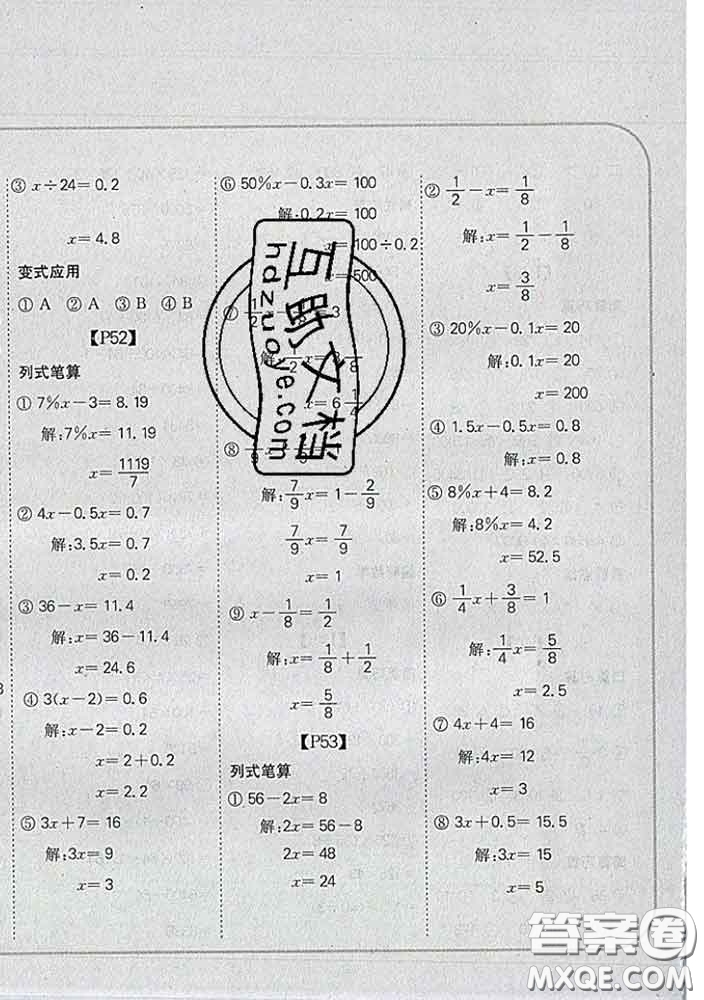 ③ x÷24=0.2
x=4.8
变式应用
①A ②A ③B ④B
【P52】
列式笔算
① 7%x-3=8.19
解:7%x=11.19
x=1119/7
② 4x-0.5x=0.7
解:3.5x=0.7
x=0.2
③ 36-x=11.4
解:x=36-11.4
x=24.6
④ 3(x-2)=0.6
解:x-2=0.2
x=2+0.2
x=2.2
⑤ 3x+7=16
解:3x=9
x=3
⑥ 50%x-0.3x=100
解:0.2x=100
x=100÷0.2
x=500
⑦
解:
x=6 1/4
⑧
解:7/9x=1-2/9
7/9x=7/9
x=1
⑨ x-1/8=1/2
解:x=1/8+1/2
x=5/8
【P53】
列式笔算
① 56-2x=8
解:2x=56-8
2x=48
x=24
② 1/2-x=1/8
解:x=1/2-1/8
x=3/8
③ 20%x-0.1x=20
解:0.1x=20
x=200
④ 1.5x-0.5x=0.8
解:x=0.8
⑤ 8%x+4=8.2
解:8%x=4.2
x=52.5
⑥ 1/4x+3/8=1
解:1/4x=5/8
x=2.5
⑦ 4x+4=16
解:4x=12
x=3
⑧ 3x+0.5=15.5
解:3x=15
x=5
互助文档
hdzuoye.com
答案圈
MXQE.COM